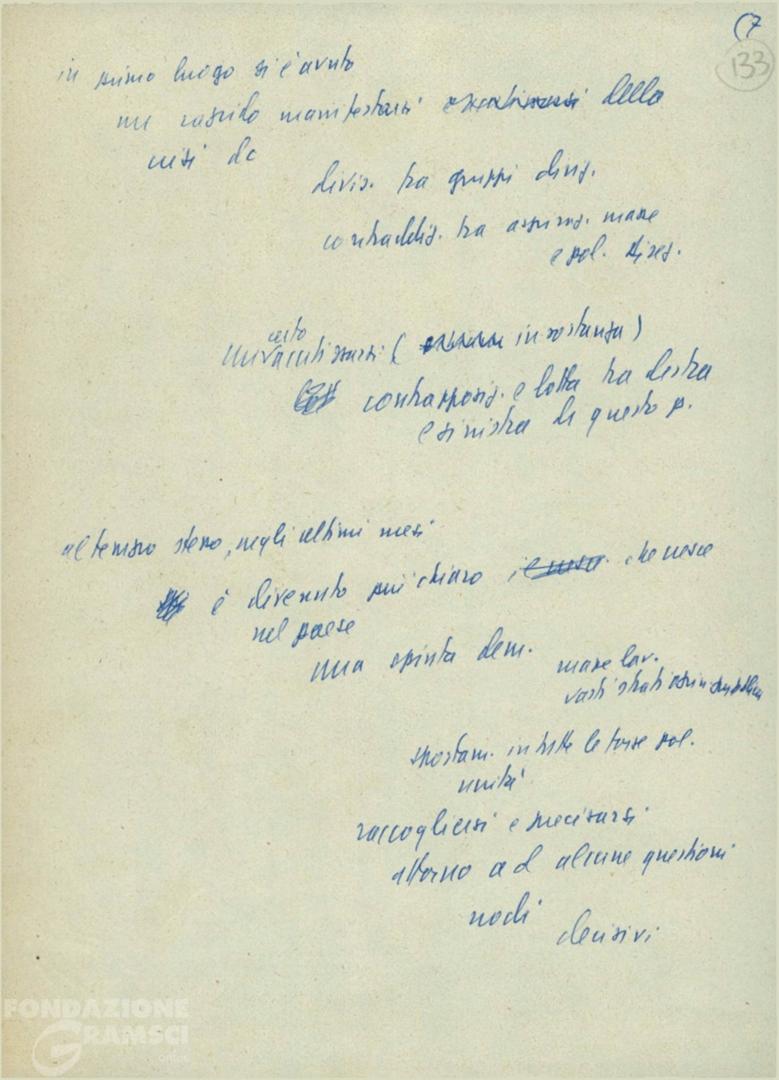 (7
133
in primo luogo si è avuto
un rapido manifestarsi della
crisi dc
divis. tra gruppi dirig.
contraddiz. tra aspiraz. masse
e pol. direz.
certo
un acutizzarsi ( in sostanza)
contrapposiz. e lotta tra destra
e sinistra di questo p.
al tempo stesso, negli ultimi mesi
è divenuto più chiaro , che cresce
nel paese
una spinta dem.
masse lav.
vasti strati opin. pubblica
spostam. in tutte le forze pol.
unità
raccogliersi e precisarsi
attorno ad alcune questioni
nodi
decisivi
FONDAZIONE
GRAMSCI